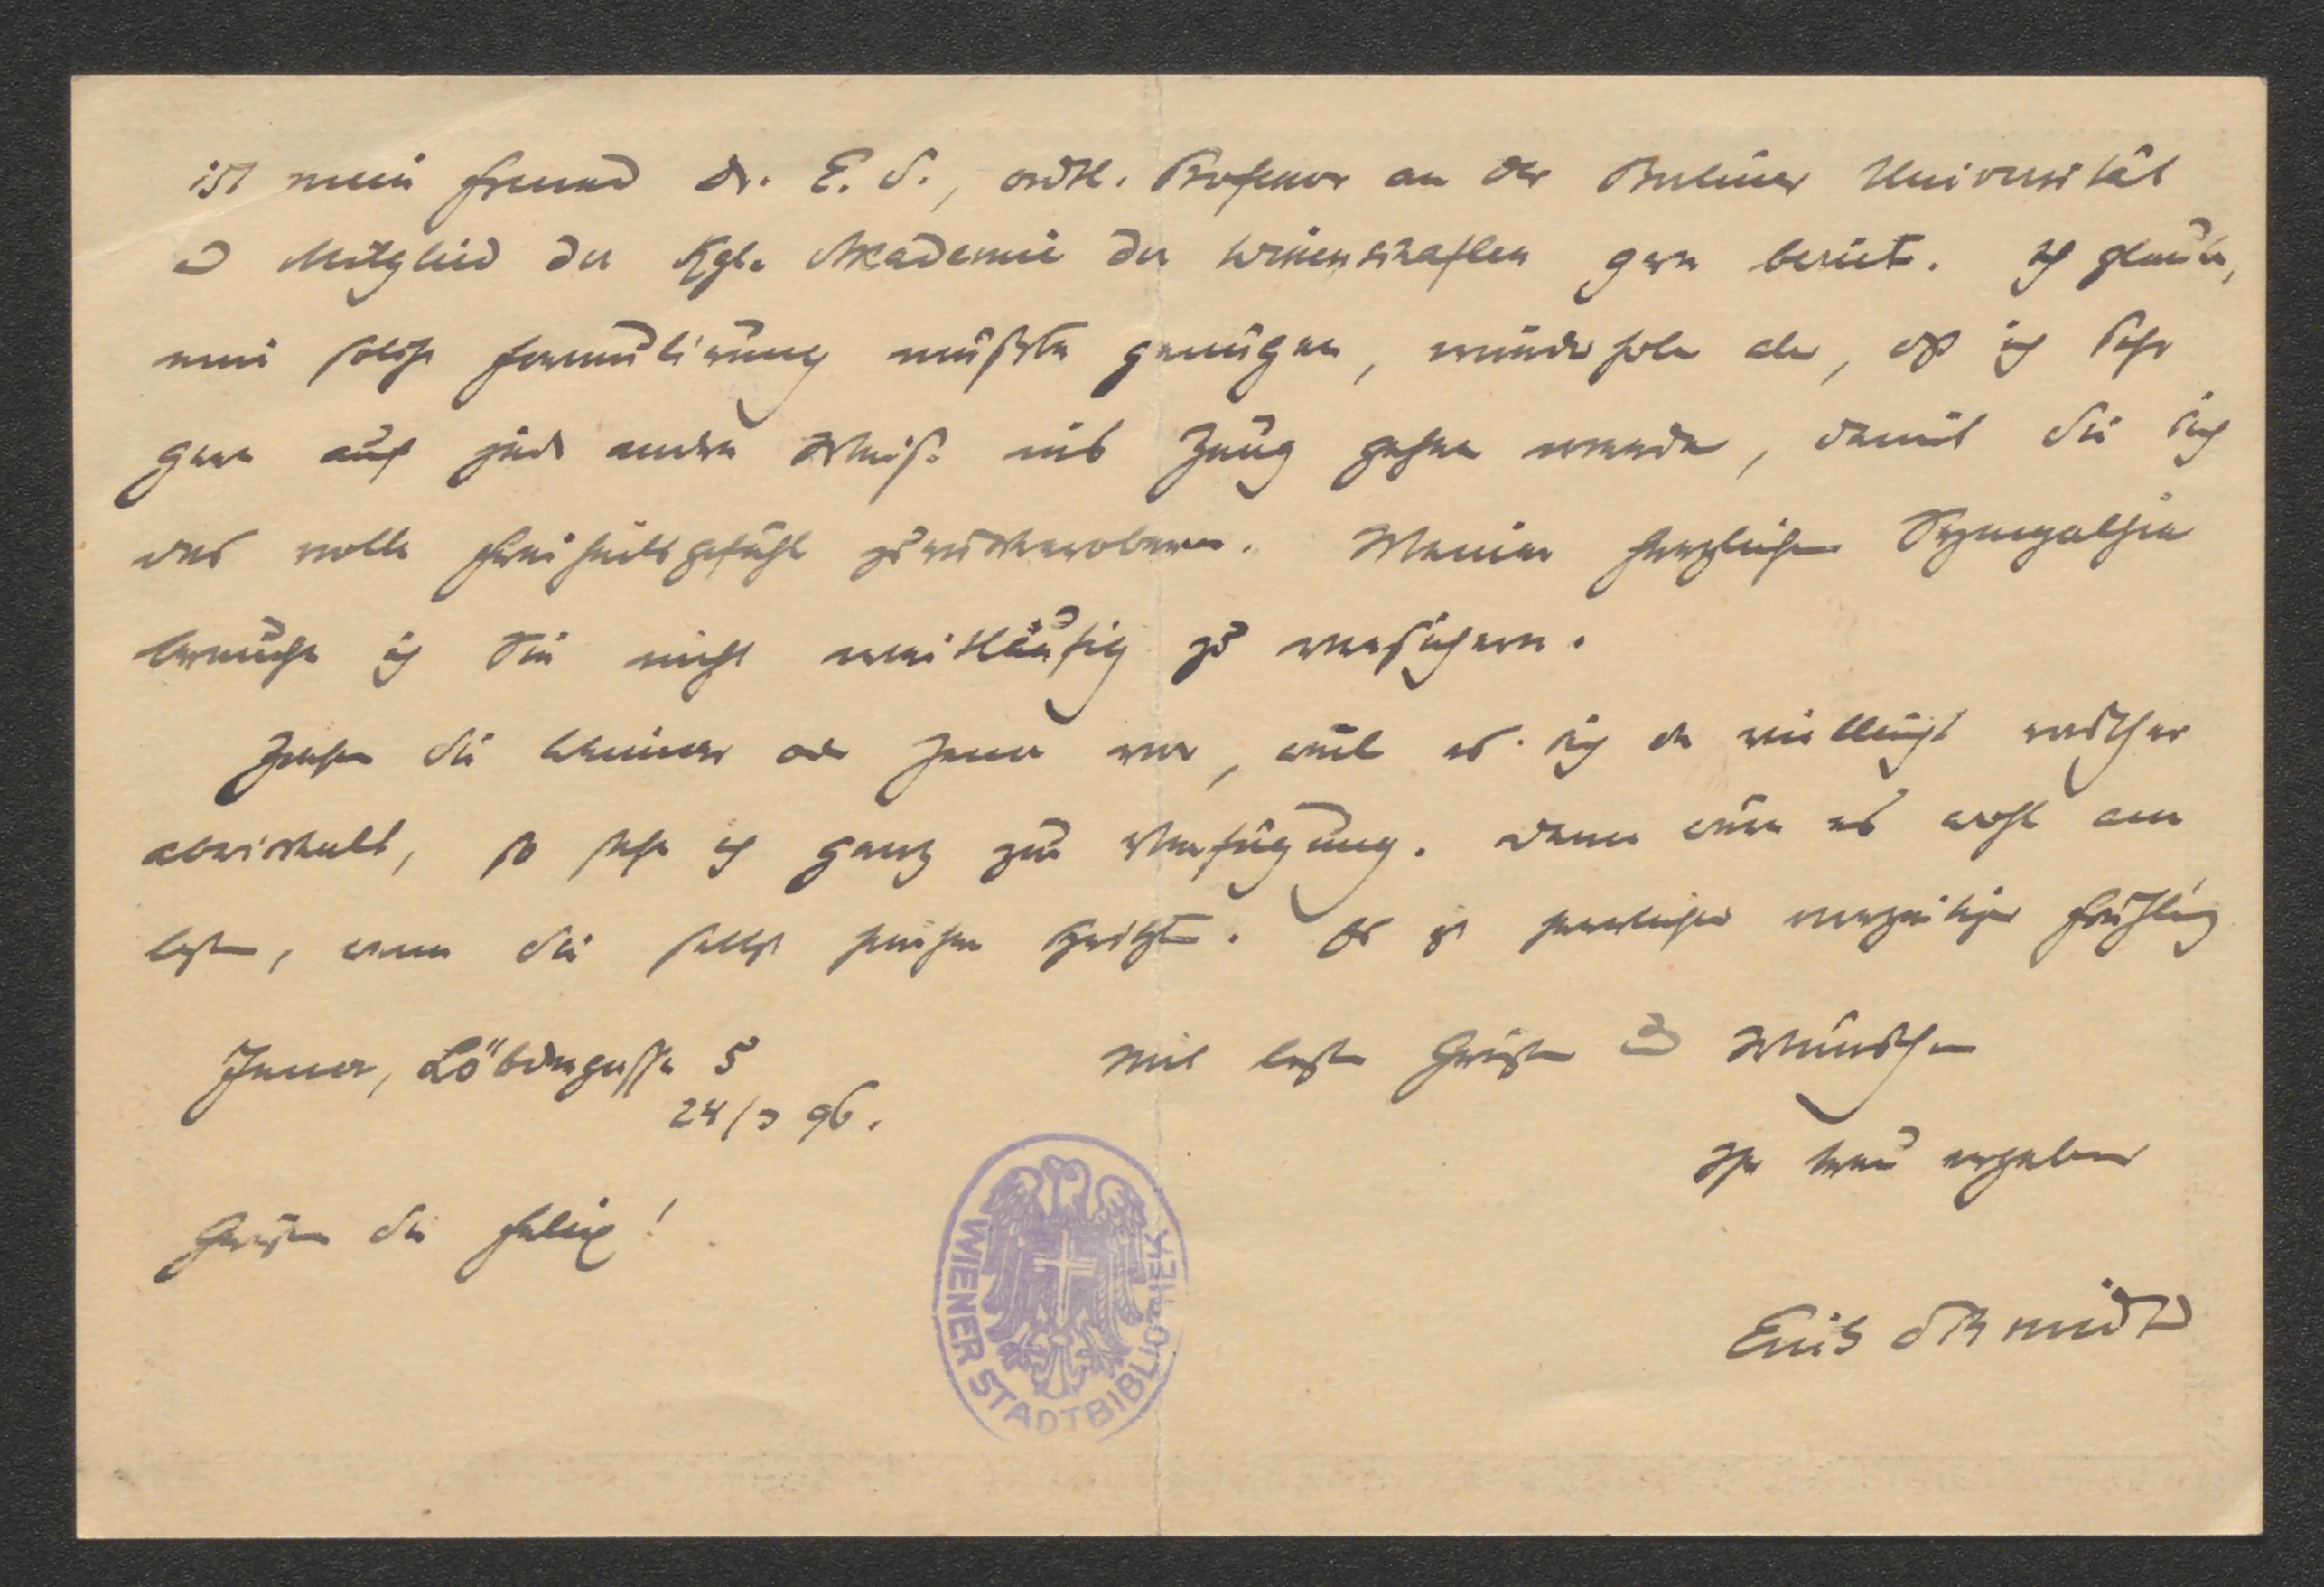 ist mein Freund Dr. E. S., ordtl. Professor an der Berliner Universität
u Mitglied der Kgl. Akademie der Wissenschaften gern bereit. Ich glaube,
eine solche Formulirung müßte genügen, wiederhole aber, dß ich sehr
gern auf jede andre Weise ins Zeug gehen werde, damit Sie sich
das volle Freiheitsgefühl zurückerobern. Meiner herzlichen Sympathie
brauche ich Sie nicht weitläufig zu versichern.
Ziehen Sie Weimar oder Jena vor, weil es sich da vielleicht rascher
abwickelt, so stehe ich ganz zur Verfügung. Dann wäre es wohl am
besten, wenn Sie selbst hierher . Es ist herrlicher vorzeitiger Frühling
Jena, Löbdergasse 5
24/3 96.
Mit besten Grüßen u Wünschen
Ihr treu ergebner
Grüßen Sie Felix!
Erich Schmidt
WIENER STADTBIBLIOTHEK